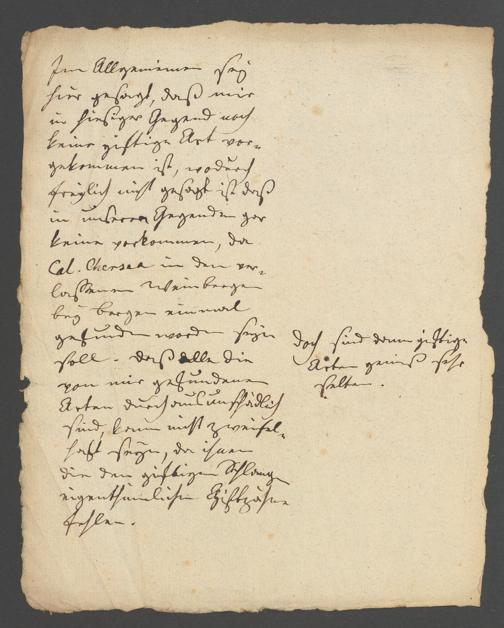 Im Allgemeinen sey
hier gesagt, daß mir
in hiesiger Gegend noch
keine giftige Art vor-
gekommen ist, wodurch
freylich nicht gesagt ist daß
in unseren Gegenden gar
keine vorkommen, da
Col. Chersea in den ver-
lassenen Weinbergen
bey bergen einmal
gefunden worden seyn
soll. daß alle die
von mir gefundenen
Arten durchaus unschädlich
sind, kann nicht zweifel-
haft seyn, da ihnen
die den giftigen Schlangen
eigenthümlichen Giftzähne
fehlen.
doch sind denn giftige
Arten gewiß sehr
selten.